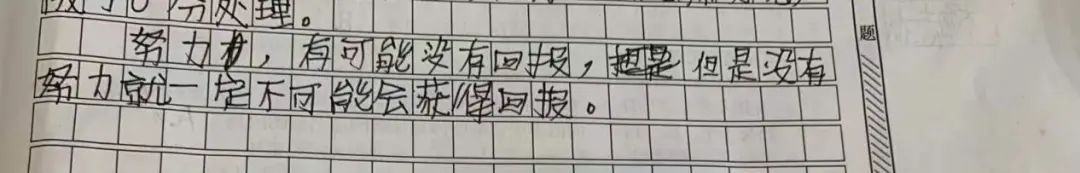 分处理。
努力，有可能没有回报，但是没有
努力就一定不可能会获得回报。
题